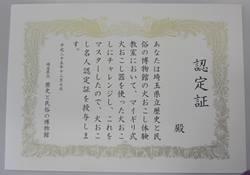 認定証
殿
あなたは埼玉県立歴史と民
俗の博物館の火おこし体験
教室において、マイギリ式
火おこし器を使った火おこ
しにチャレンジし、これを
マスターしたので、火おこ
し名人認定証を授与しま
す。
平成二十五年十二月
埼玉県立 歴史と民俗の博物館